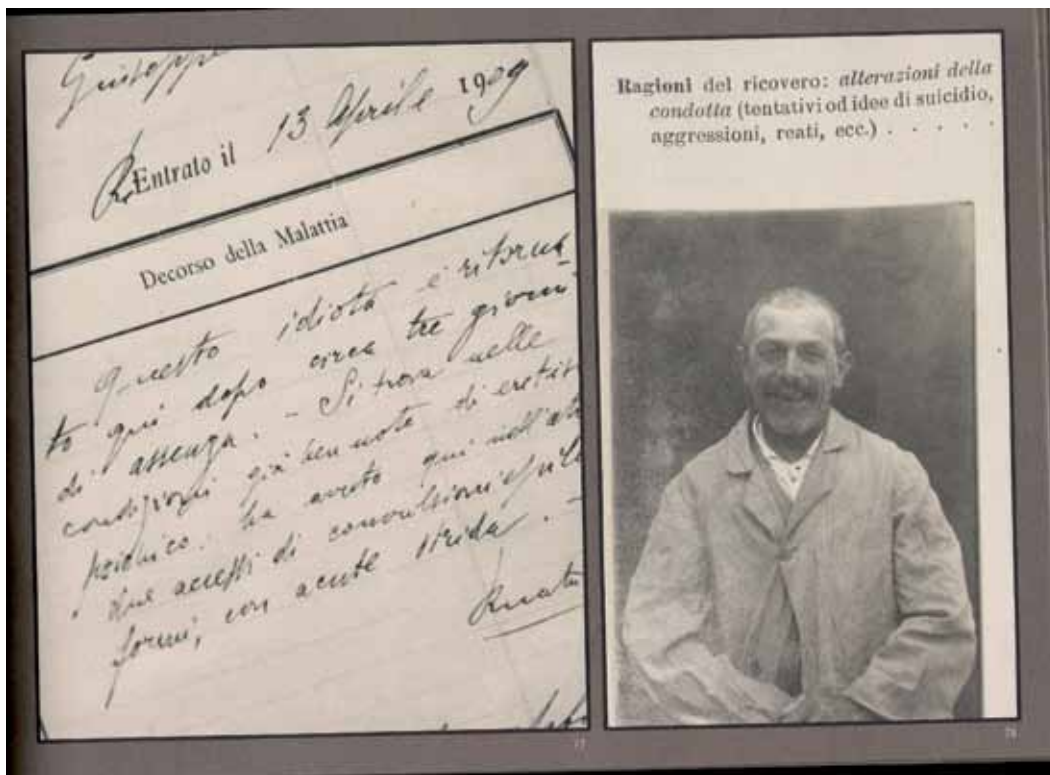 Giuseppe
Entrato il 13 Aprile 1909
Decorso della Malattia
Questo idiota è ritorna
to qui dopo circa tre giorni
di assenza. - Si trova nelle
condizioni già ben note di eretis
psichico. ha avuto qui nell'atto
due accessi di convulsioni epiles
formi, con acute strida. -
Ragioni del ricovero: alterazioni della
condotta (tentativi od idee di suicidio,
aggressioni, reati, ecc.) . . . . .
77
78